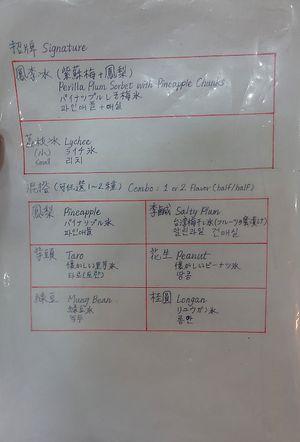 招牌 Signature
鳳李冰 (紫蘇梅+鳳梨)
Perilla Plum Sorbet with Pineapple Chunks
パイナップルしそ梅氷
파인애플+매실
荔枝冰 Lychee
(小) ライチ氷
Small 리치
混搭 (可任選1~2種) Combo: 1 or 2 Flavor (half/half)
鳳梨 Pineapple
パイナップル氷
파인애플
李鹹 Salty Plum
芋頭 Taro
懐かしい里芋氷
花生 Peanut
懐かしいピーナツ氷
땅콩
綠豆 Mung Bean
緑豆氷
녹두
桂圓 Longan
リュウガン氷
용안